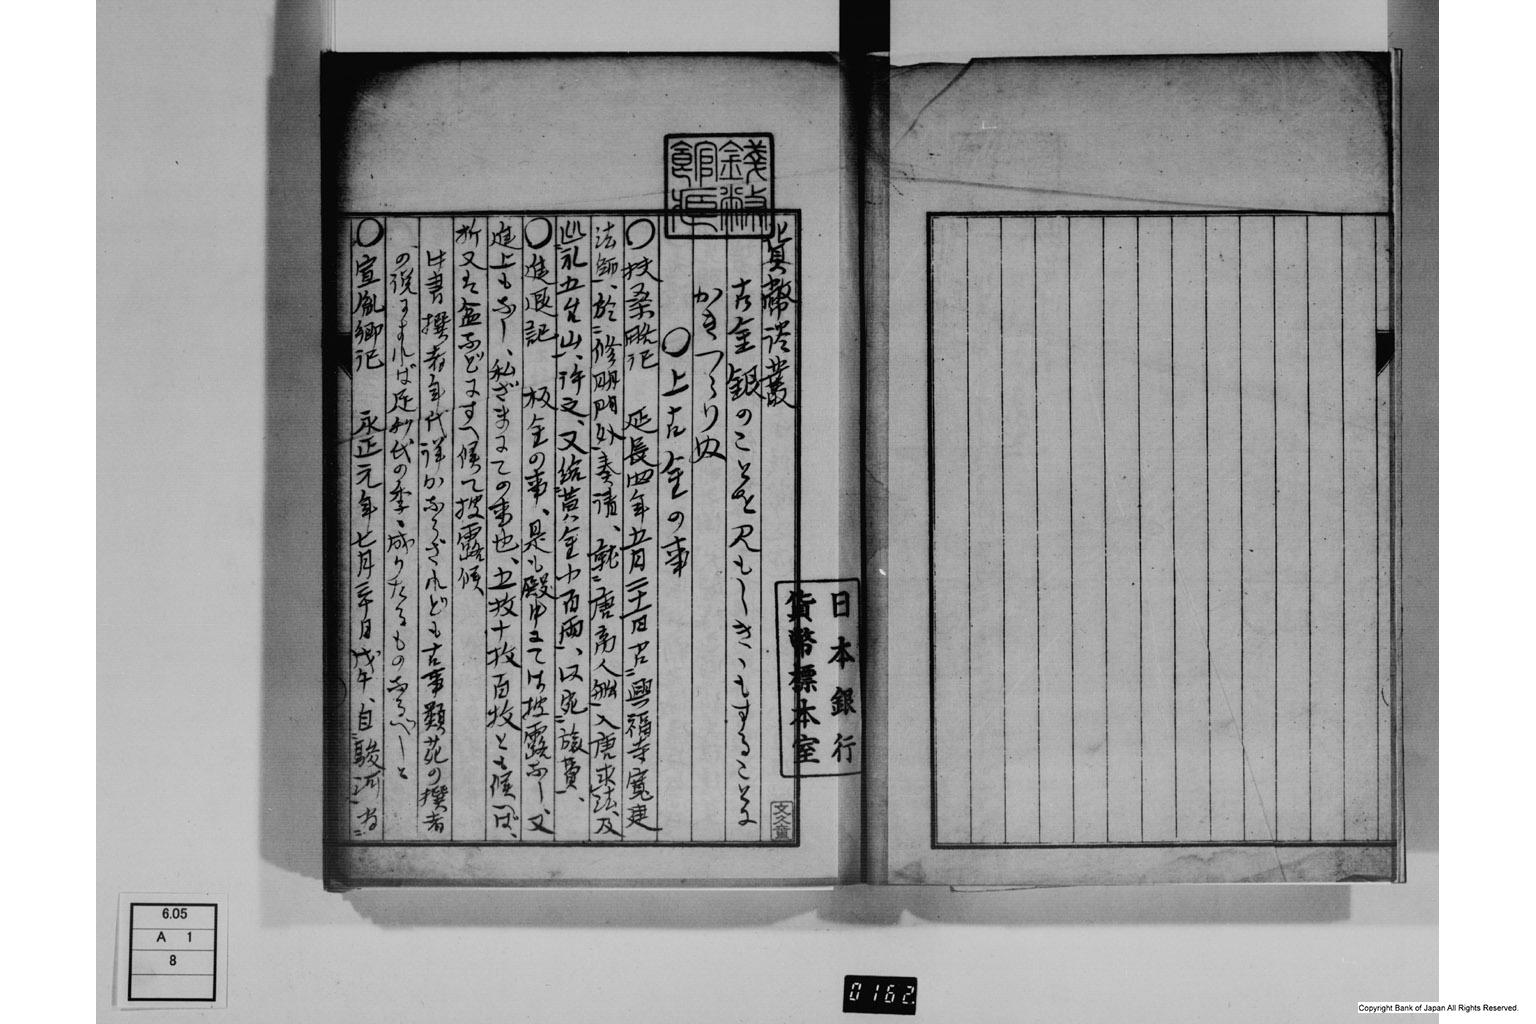 貨幣談叢
古金銀のことを見もしきゝもすることに
かきつゝりぬ
〇上古金の事
〇扶桑略記 延長四年五月二十一日召興福寺寛建
法師、於修明門外奏請、就唐商人船入唐求法、及
巡礼五台山、許之、又給黄金小百両、以宛旅費、
〇進退記 板金の事、是も殿中にては披露なし、又
進上もなし、私ざまにての事也、五枚十枚百枚とも候へば、
折又は盆などにすへ候て披露候
此書撰者年代詳かならざれども古事類苑の撰者
の説にすれば足利氏の季、成りたるものなるべしと
〇宣胤卿記 永正元年七月二十日戊午、自駿河
日本銀行
貨幣標本室
銭幣館
文久童
6.05
A 1
8
0162
Copyright Bank of Japan All Rights Reserved.